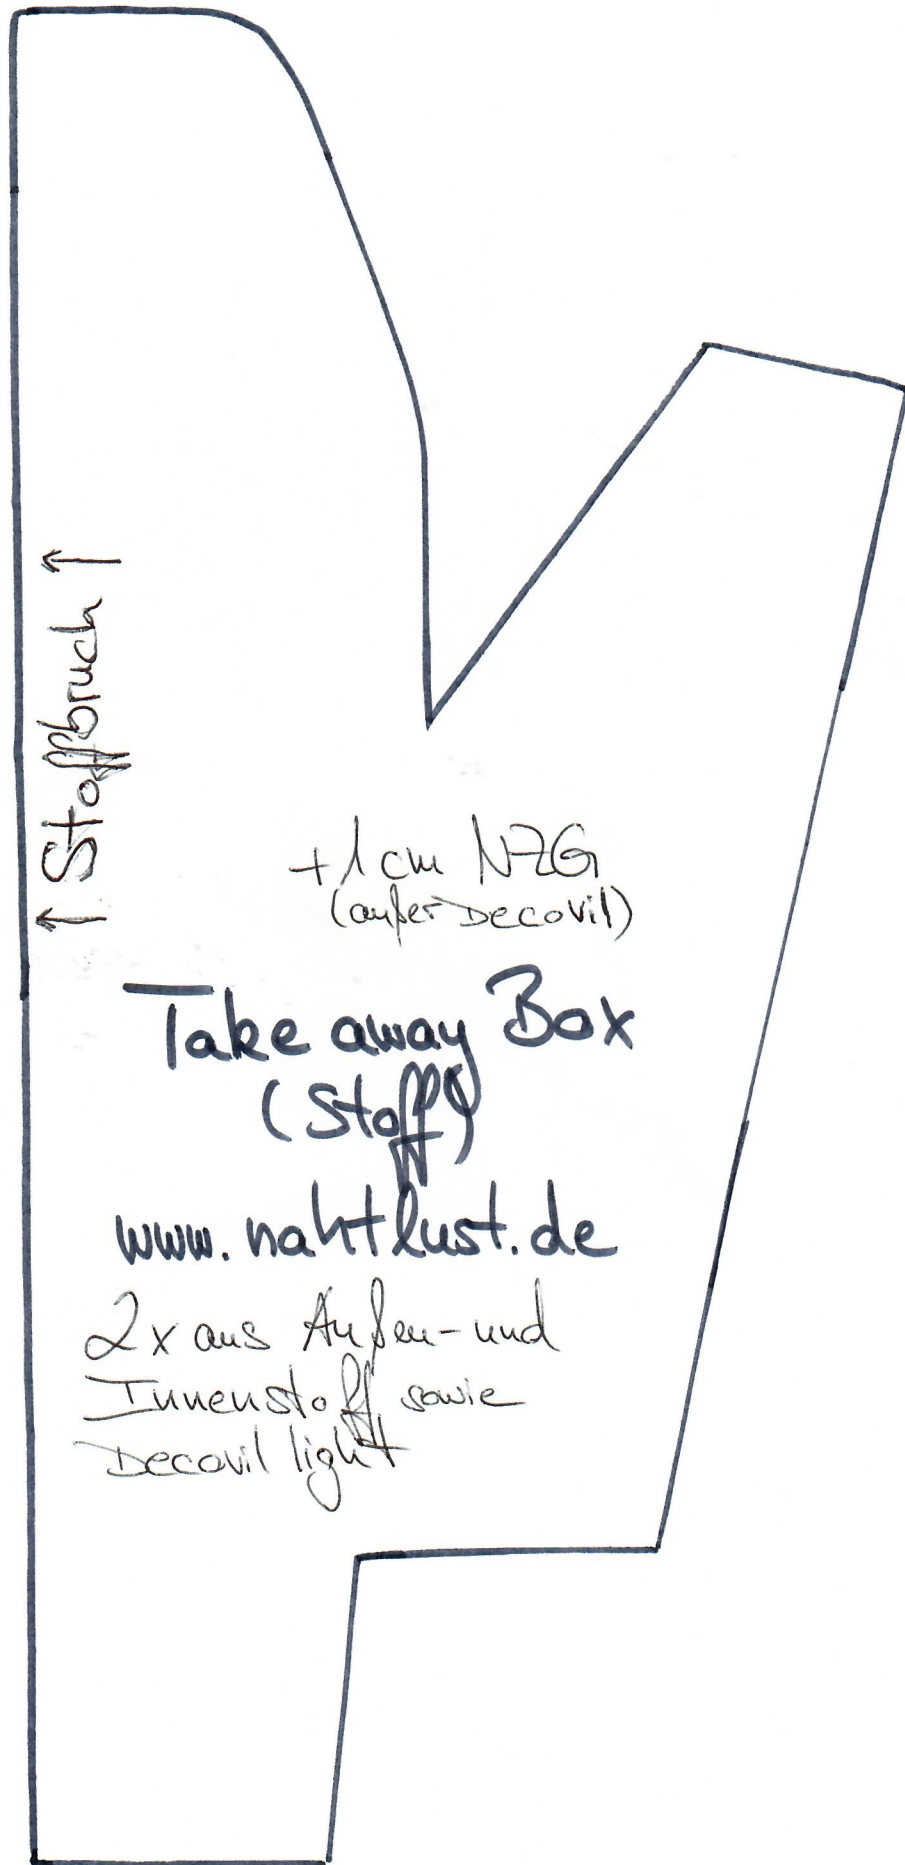 ↑ Stoffbruch ↑
+1cm NZG
(außer Decovil)
Take away Box
(Stoff)
www.nahtlust.de
2x aus Außen- und
Innenstoff sowie
Decovil light